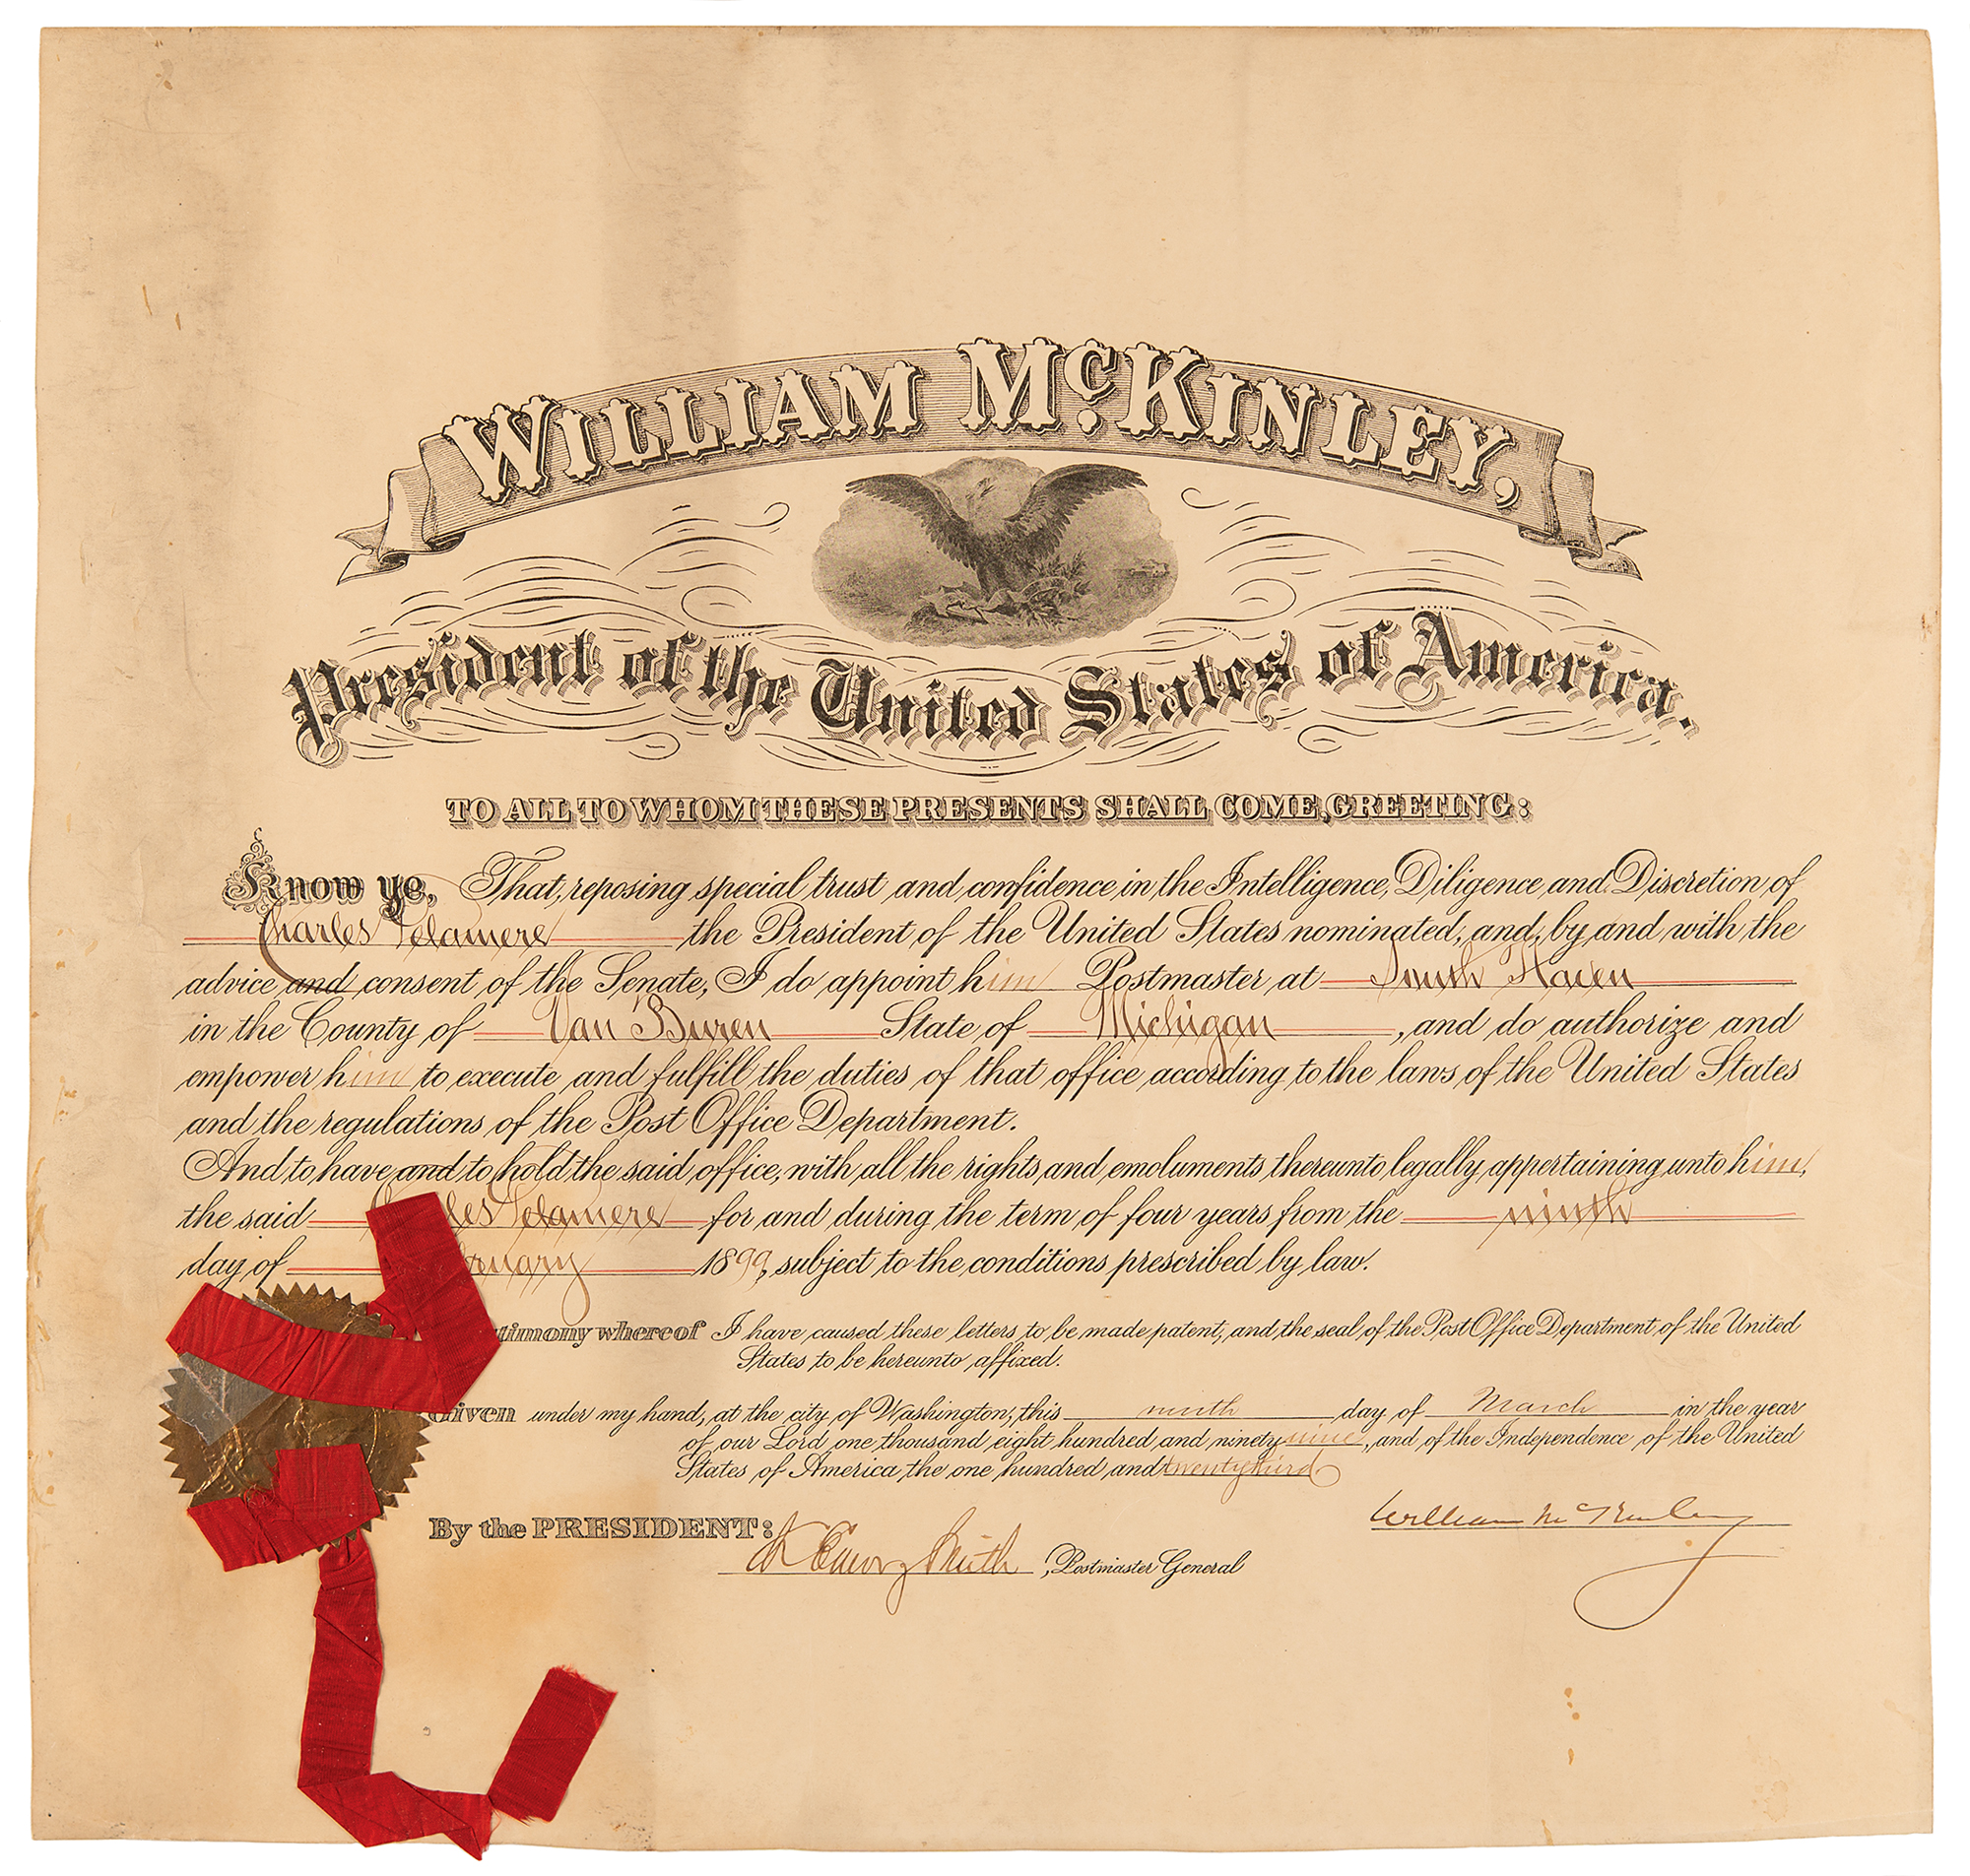 WILLIAM McKINLEY,
President of the United States of America.
TO ALL TO WHOM THESE PRESENTS SHALL COME, GREETING:
Know ye, That, reposing special trust and confidence in the Intelligence, Diligence and Discretion of
Charles Delamere the President of the United States nominated, and, by and with the
advice and consent of the Senate, I do appoint him Postmaster at South Haven
in the County of Van Buren State of Michigan, and do authorize and
empower him to execute and fulfill the duties of that office according to the laws of the United States
and the regulations of the Post Office Department.
And to have and to hold the said office, with all the rights and emoluments thereunto legally appertaining unto him,
the said les Delamere for and during the term of four years from the ninth
day of ruary 1899, subject to the conditions prescribed by law.
timony whereof I have caused these letters to be made patent, and the seal of the Post Office Department of the United
States to be hereunto affixed.
Given under my hand, at the city of Washington, this ninth day of March in the year
of our Lord one thousand eight hundred and ninety nine, and of the Independence of the United
States of America the one hundred and twenty third
William McKinley
By the PRESIDENT:
Ch Emory Smith, Postmaster General